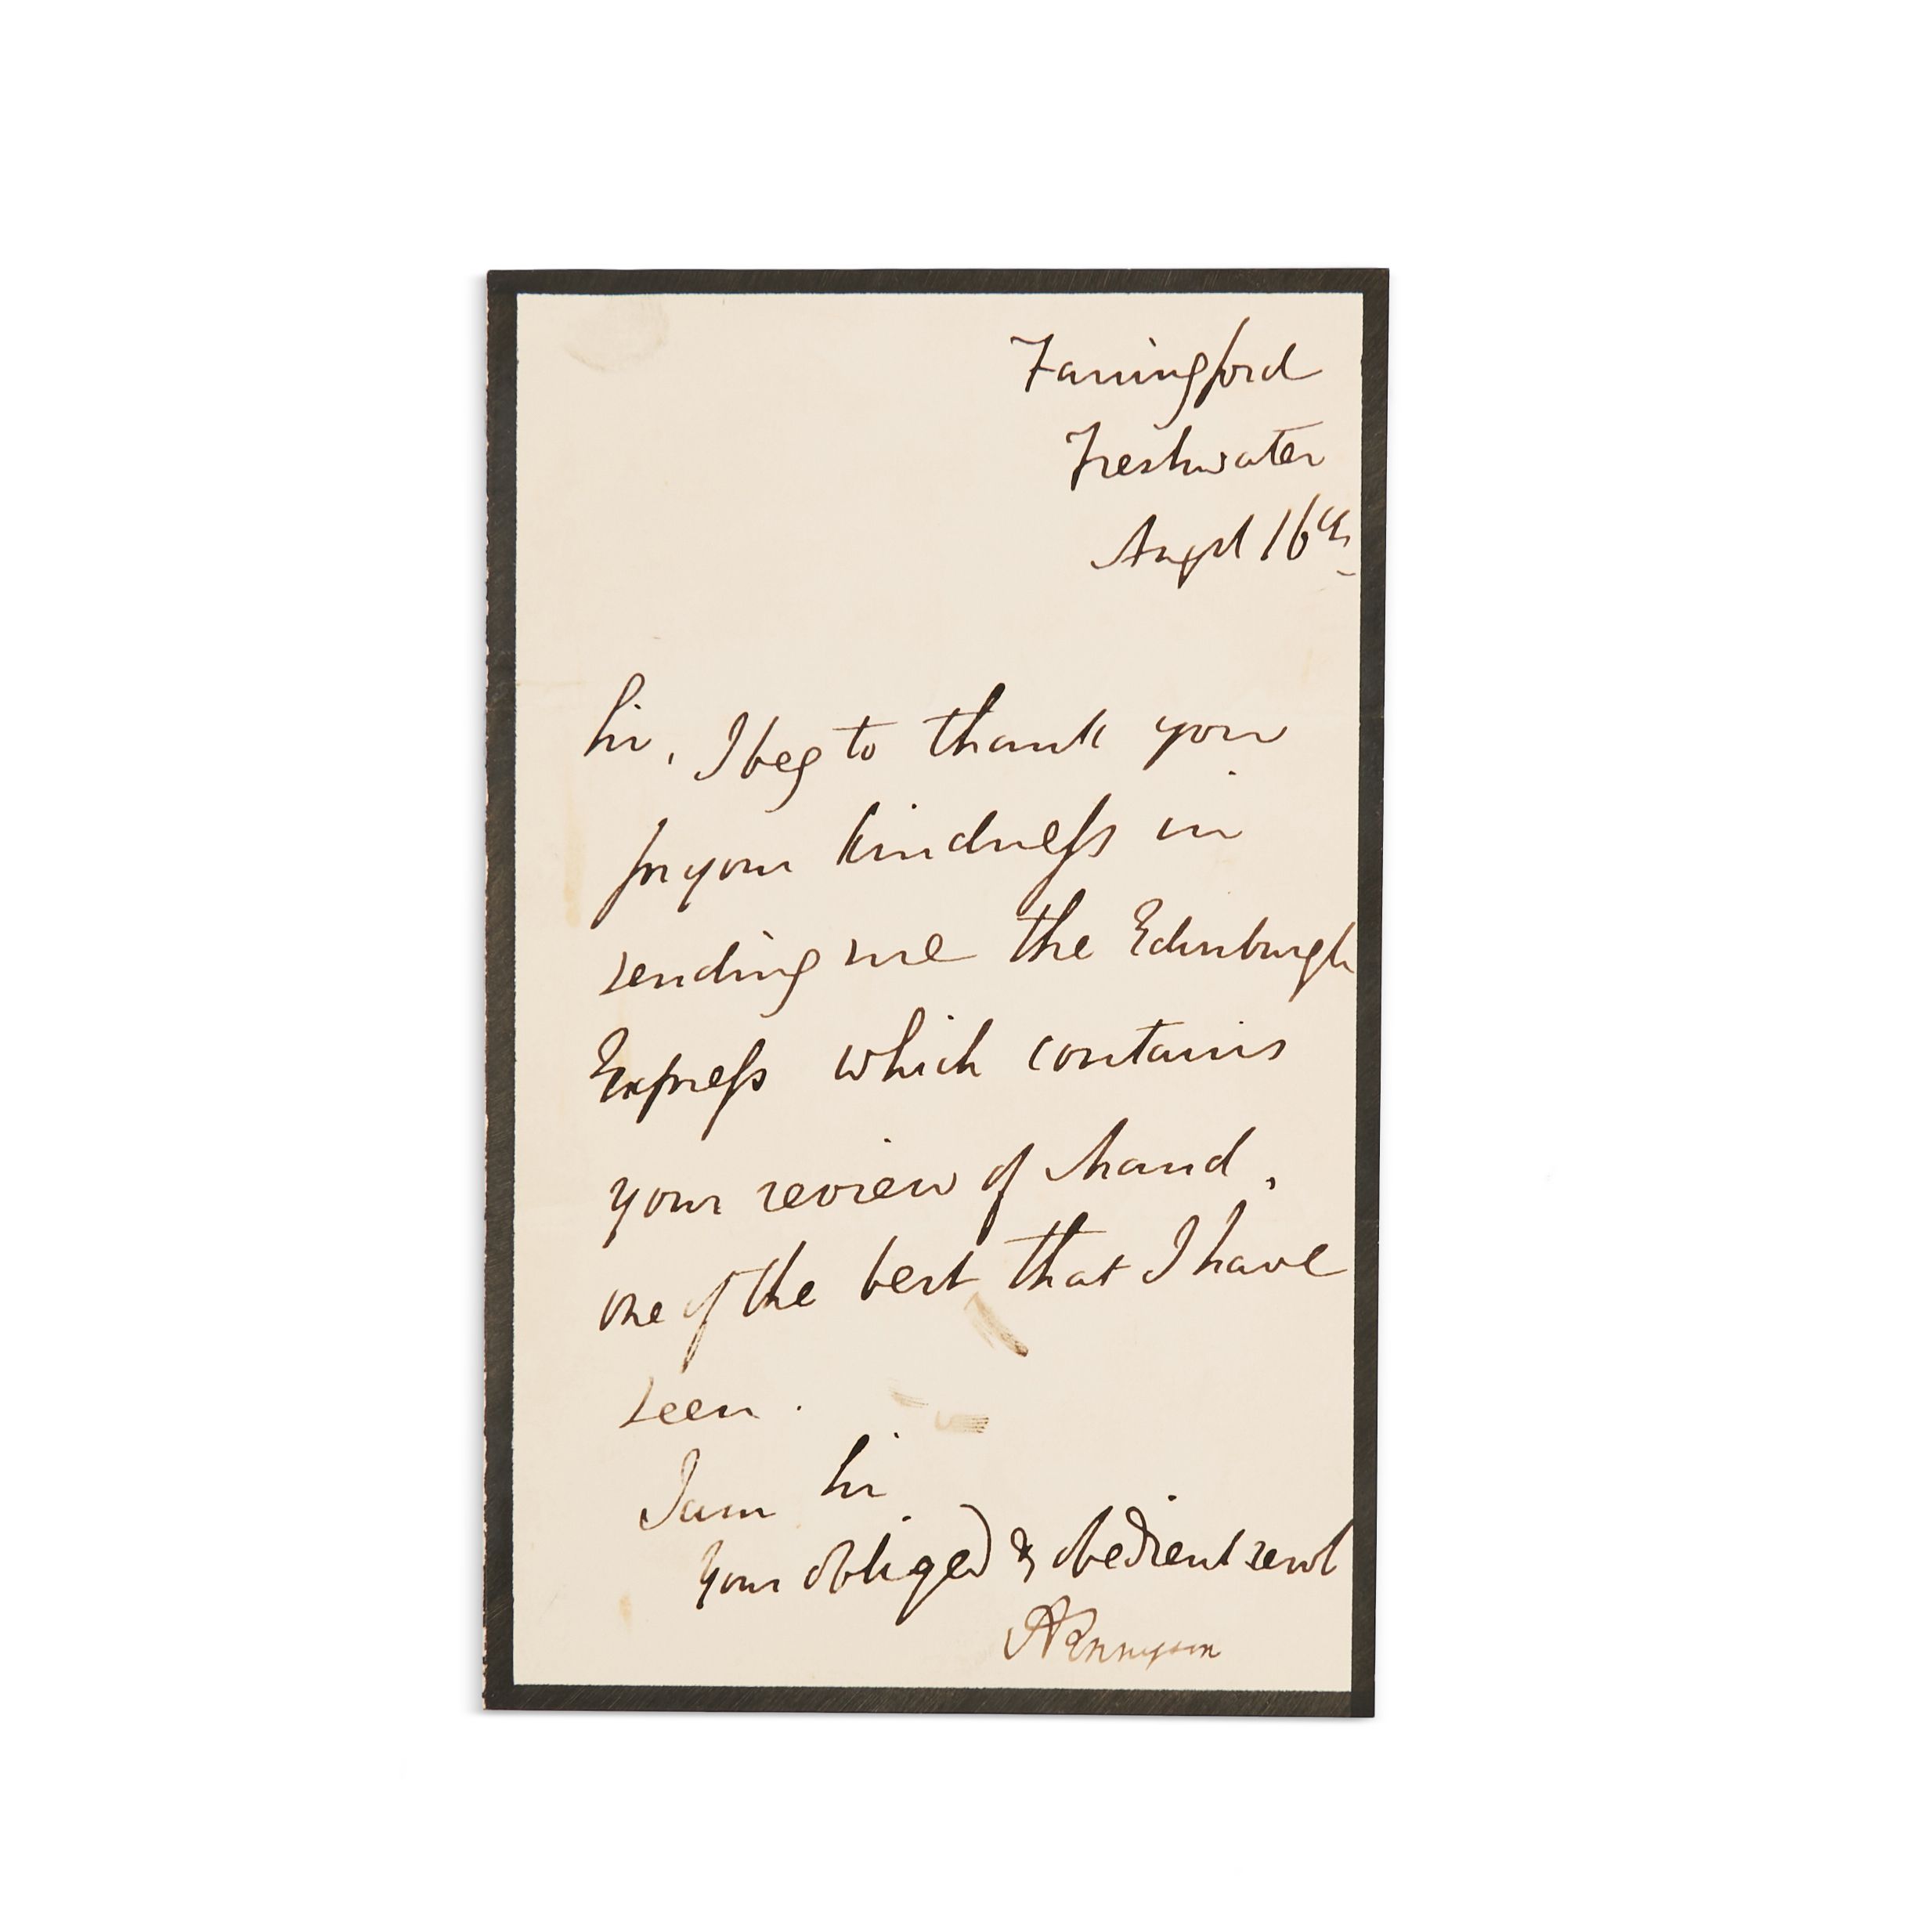 Farringford
Freshwater
Augst 16th
Sir, I beg to thank you
for your kindness in
sending me the Edinburgh
Express which contains
your review of Maud,
one of the best that I have
seen.
I am Sir
Your obliged & obedient servt
ATennyson